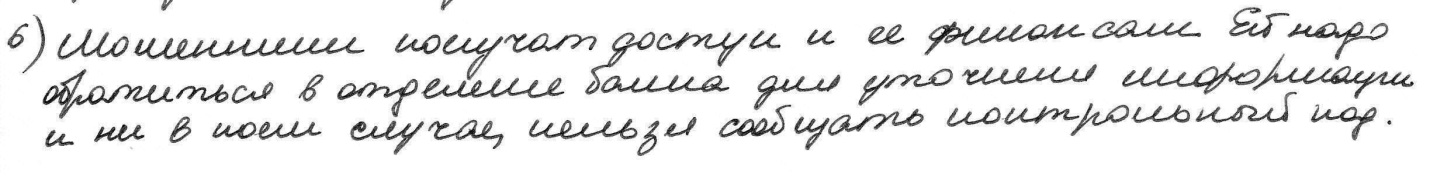 6) Мошенники получат доступ к ее финансам. Ей надо
обратиться в отделение банка для уточнения информации
и ни в коем случае, нельзя сообщать контрольный код.